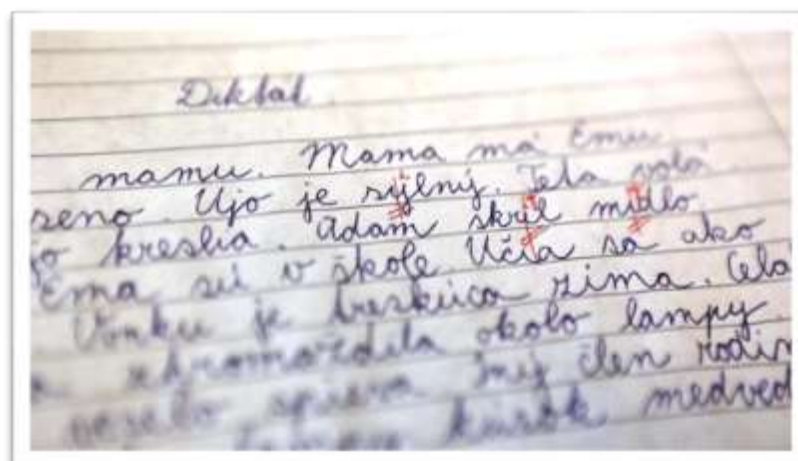 Diktát
mamu. Mama má Emu.
seno. Ujo je syjlný. Teta volá
kreslia. Adam skril midlo.
Ema sú v škole. Učia sa ako
Vonku je treskúca zima. Celá
zhromaždila okolo lampy.
veselo spieva iný člen rodin
kúsok medveď